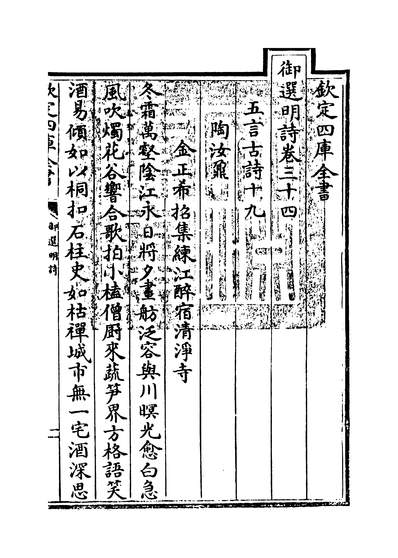 欽定四庫全書
御選明詩卷三十四
五言古詩十九
陶汝鼐
金正希招集練江醉宿清淨寺
冬霜萬壑陰江永日將夕畫舫泛容與川暝光愈白急
風吹燭花谷響合歌拍小榼僧廚來蔬笋界方格語笑
酒易傾如以桐扣石柱史如枯禪城市無一宅酒深思
欽定四庫全書
御選明詩